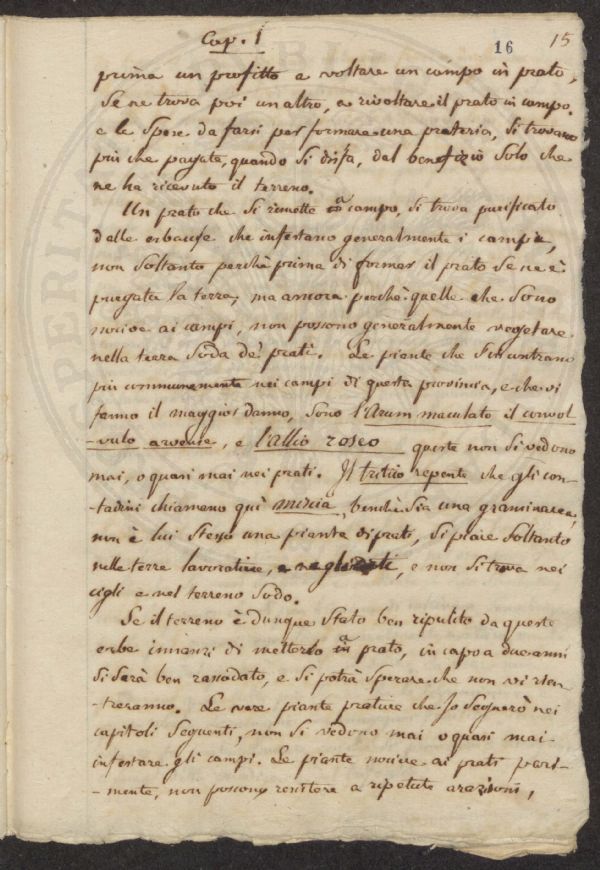 Cap. I
16
15
prima un profitto a voltare un campo in prato,
se ne trova poi un altro, a rivoltare il prato in campo.
e le spese da farsi per formare una prateria, si trovano
più che pagate, quando si disfa, dal benefizio solo che
ne ha ricevuto il terreno.
Un prato che si rimette in campo, si trova purificato
dalle erbacce che infestano generalmente i campi,
non soltanto perchè prima di formar il prato se ne è
purgata la terra, ma ancora perchè quelle che sono
nocive ai campi, non possono generalmente vegetare
nella terra soda de' prati. Le piante che s'incontrano
più communemente nei campi di questa provincia, e che vi
fanno il maggior danno, sono l'Arum maculato il convol
-vulo arvense, e l'allio roseo queste non si vedono
mai, o quasi mai nei prati. Il tritico repente che gli con-
-tadini chiamano quì , benchè sia una graminacea,
non è lui stesso una pianta di prati, si piace soltanto
nelle terre lavorative, e non si trova nei
cigli e nel terreno sodo.
Se il terreno è dunque stato ben ripulito da queste
erbe innanzi di metterlo in prato, in capo a due anni
si sarà ben rassodato, e si potrà sperare che non vi rien-
-treranno. Le vere piante prative che Io segnerò nei
capitoli seguenti, non si vedono mai o quasi mai
infestare gli campi. Le piante nocive ai prati pari-
-mente, non possono resistere a ripetute arazioni,